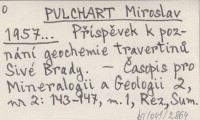 0
PULCHART Miroslav
1957... Příspěvek k poz-
nání geochemie travertinů
Sivé Brady. – Časopis pro
Mineralogii a Geologii 2,
nr 2: 143-147, m.1, Réz, Sum.